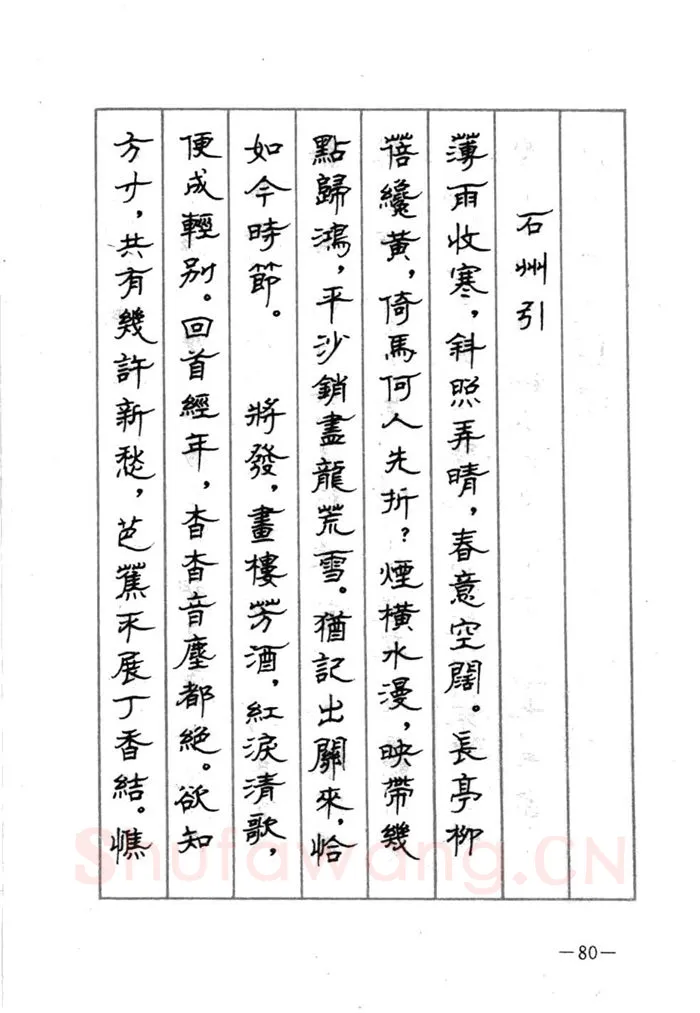 石州引
薄雨收寒，斜照弄晴，春意空闊。長亭柳
蓓纔黃，倚馬何人先折？煙橫水漫，映帶幾
點歸鴻，平沙銷盡龍荒雪。猶記出關來，恰
如今時節。 將發，畫樓芳酒，紅淚清歌，
便成輕別。回首經年，杳杳音塵都絕。欲知
方寸，共有幾許新愁，芭蕉不展丁香結。憔
ShufaWang.CN
—80—